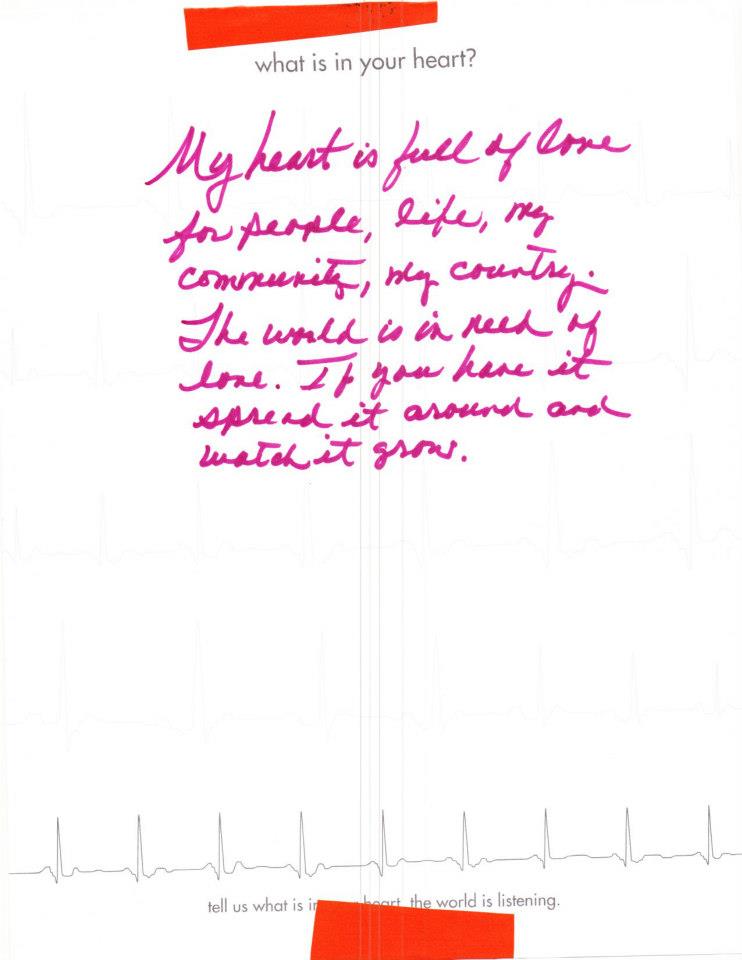 what is in your heart?
My heart is full of love
for people, life, my
community, my country.
The world is in need of
love. If you have it
spread it around and
watch it grow.
tell us what is in heart, the world is listening.